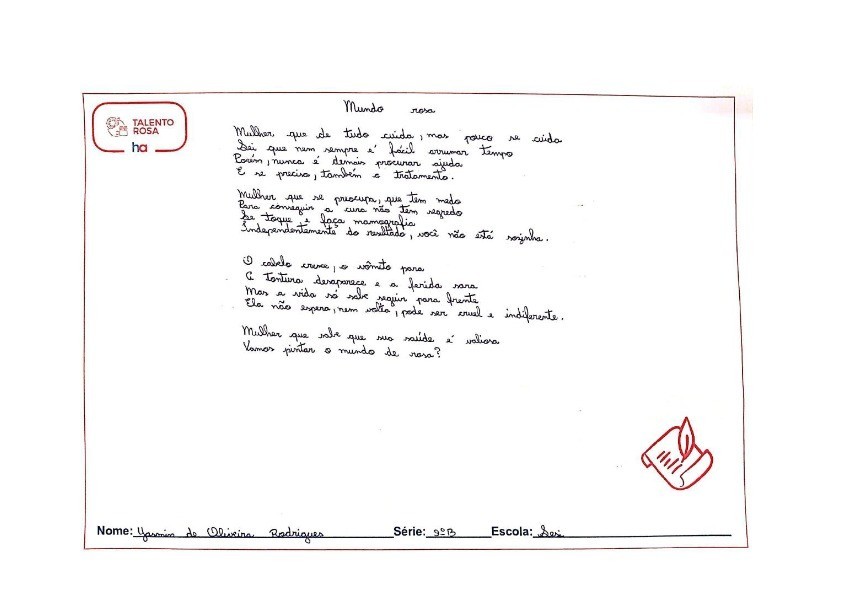 Mundo rosa
TALENTO
ROSA
ha
Mulher que de tudo cuida, mas pouco se cuida
Sei que nem sempre é fácil arrumar tempo
Porém, nunca é demais procurar ajuda
E se preciso, também o tratamento.
Mulher que se preocupa, que tem medo
Para conseguir a cura não tem segredo
Se toque e faça mamografia
Independentemente do resultado, você não está sozinha.
O cabelo cresce, o vômito para
A tontura desaparece e a ferida sara
Mas a vida só sabe seguir para frente
Ela não espera, nem volta, pode ser cruel e indiferente.
Mulher que sabe que sua saúde é valiosa
Vamos pintar o mundo de rosa?
Nome: Yasmin de Oliveira Rodrigues Série: 9ºB Escola: Sesi